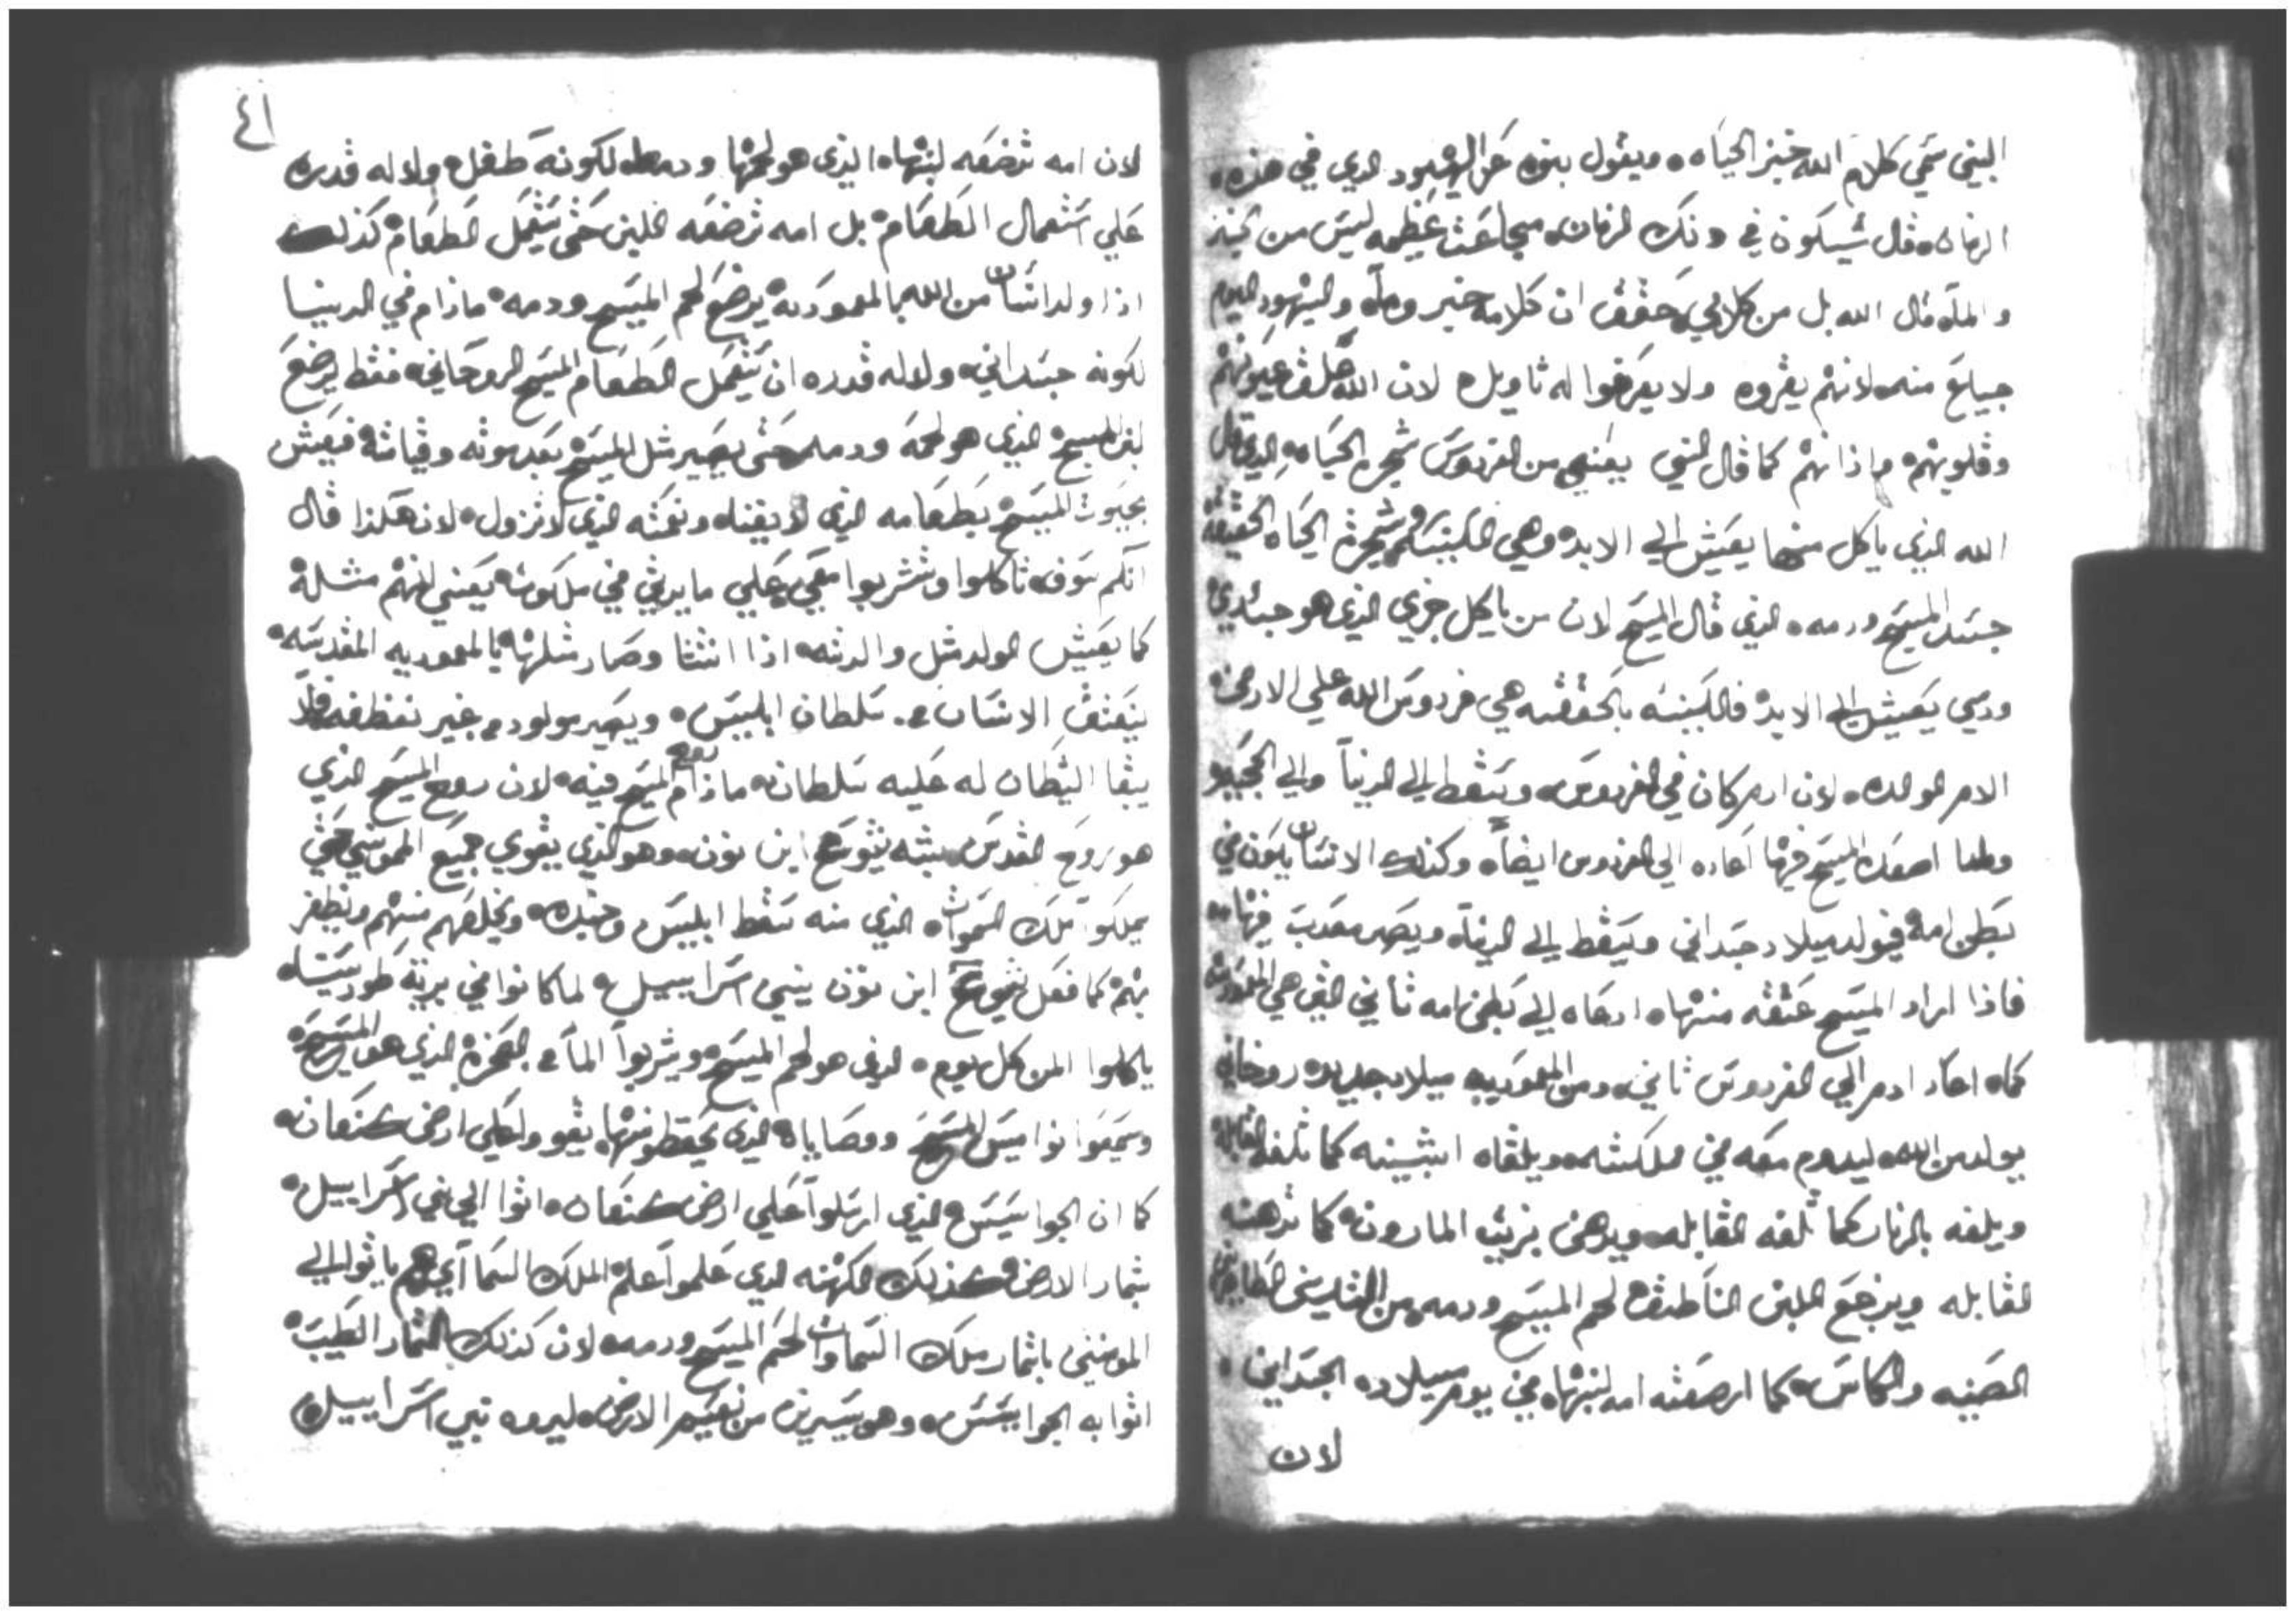 البني سمي كلام الله خبز الحياه ويقول بنوه عن اليهود الدي في هذه
الزمان قال سيكون في دلك الزمان مجاعت عظيمه ليس من خبز
والمآ قال الله بل من كلامي حقق ان كلامه خبز ومآ واليهود اليوم
جياع منه لانهم يقروه ولا يعرفوا له تاويل لان الله غلف عيونهم
وقلوبهم واذانهم كما قال النبي يعني من الفردوس شجرة الحياه الدي قال
الله الذي ياكل منها يعيش الي الابد وهي الكنيسه وشجرة الحياه الحقيقة
جسد المسيح ودمه الذي قال المسيح لان من ياكل خبزي الذي هو جسدي
ودمي يعيش الي الابد فالكنيسه بالحقيقه هي فردوس الله علي الارض
الام الوالده لان ادم كان في الفردوس وسقط الي الدنيا والي الجحيم
ولما اصعد المسيح فيها اعاده الي الفردوس ايضاً وكذلك الانسان يكون في
بطن امه فيولد ميلاد جسداني ويسقط الي الدنيا ويصير معدب فيها
فاذا اراد المسيح عتقه منها ادعاه الي بطن امه تاني التي هي المعمودية
كما اعاد ادم الي الفردوس تاني ومن المعموديه ميلاد جديد روحاني
يولد من الله ليدوم معه في مملكته ويلقاه اشبينه كما تلقفه القابلة
ويلفه بالزنار كما تلفه القابله ويدهن بزيت المارون كما تدهنه
القابله ويرضع اللبن الناطق لحم المسيح ودمه من التديين الطاهرين
الصنيه والكاس كما ارضعته امه لبنها في يوم ميلاده الجسداني
لان
٤١
لان امه ترضعه لبنها الذي هو لحمها ودمها لكونه طفل ولا له قدره
علي استعمال الطعام بل امه ترضعه اللبن حتى يتعمل الطعام كذلك
اذا ولد انسان من الله بالمعموديه يرضع لحم المسيح ودمه ماذام في الدنيا
لكونه جسداني ولا له قدره ان يتعمل الطعام المسيح الروحاني فقط يرضع
لبن المسيح الذي هو لحمه ودمه حتى يصير مثل المسيح بعد موته وقيامته فيعيش
بحيوت المسيح بطعامه الذي لا يفناه ونعمته الذي لا تزول لان هكذا قال
انكم سوف تاكلوا وتشربوا معي علي مايدتي في ملكوته يعني انهم مثله
كما يعيش الولد مثل والدته اذا انتشا وصار مثلها بالمعموديه المقدسه
ينعتق الانسان من سلطان ابليس ويصير مولود من غير نطفه فلا
يبقا الشيطان له عليه سلطان ماذام روح المسيح فيه لان روح المسيح الذي
هو روح القدس يشبه يشوع ابن نون وهو الذي يقوي جميع المومنين حتي
يملكوا تلك السموات الذي منه سقط ابليس وجنده ويخلصهم منهم ويظفر
بهم كما فعل يشوع ابن نون ببني اسراييل لما كانوا في برية طور سيناه
ياكلوا المن كل يوم الذي هو لحم المسيح ويشربوا المآ من الصخرة الذي هو المسيح
وسمعوا نواميس المسيح ووصاياه الذي بحفظهم منها يقووا علي ارض كنعان
كما ان الجواسيس الذي ارسلوا علي ارض كنعان اتوا الي بني اسراييل
بثمار الارض كذلك الكهنه الذي علموا علم الملك السماآي هم ياتوا الي
المومنين باثمار ملك السماوات لحم المسيح ودمه لان كذلك الثمار الطيبه
اتوا به الجواسيس وهو يسيرين من نعيم الارض ليروه بني اسراييل